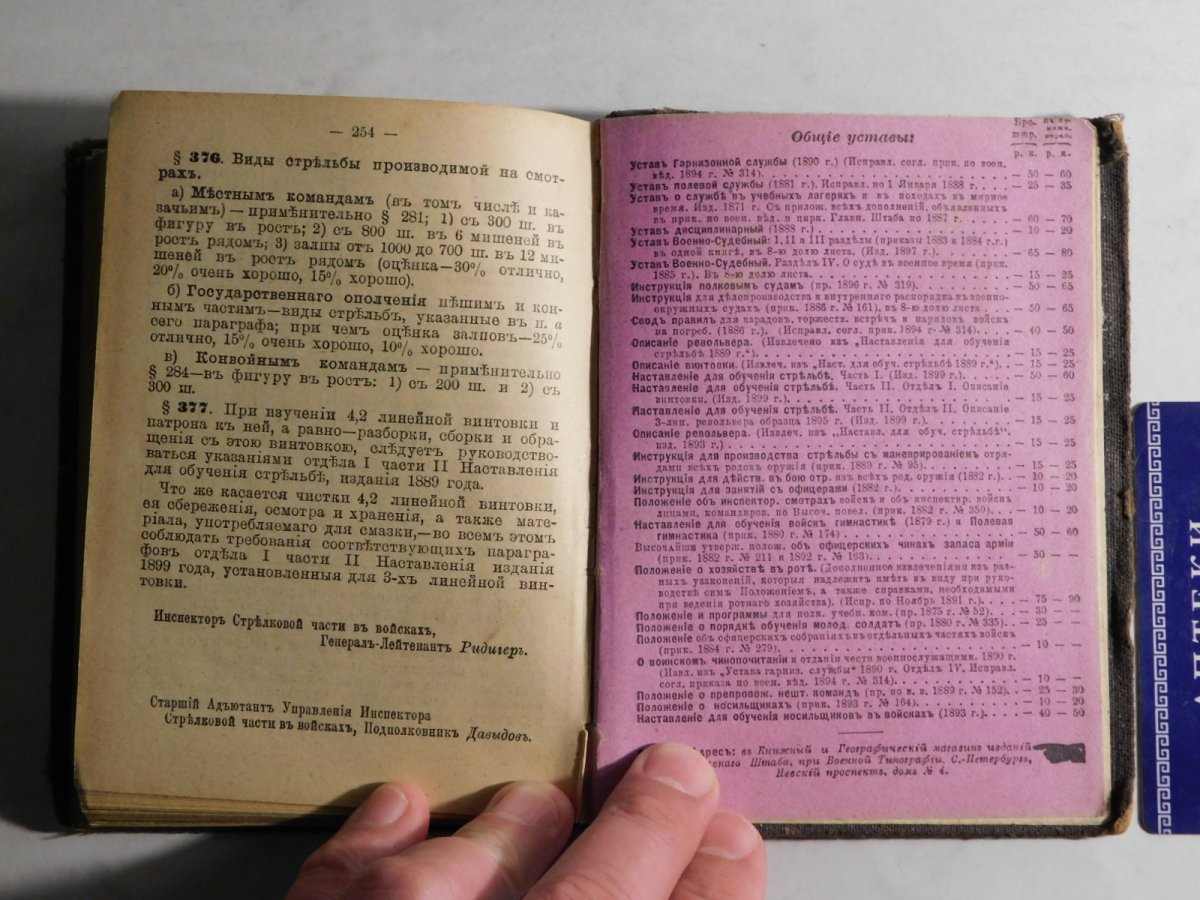 — 254 —
§ 376. Виды стрѣльбы производимой на смот-
рахъ.
а) Мѣстнымъ командамъ (въ томъ числѣ и ка-
зачьимъ) — примѣнительно § 281; 1) съ 300 ш. въ
фигуру въ ростъ; 2) съ 800 ш. въ 6 мишеней въ
ростъ рядомъ; 3) залпы отъ 1000 до 700 ш. въ 12 ми-
шеней въ ростъ рядомъ (оцѣнка—30% отлично,
20% очень хорошо, 15% хорошо).
б) Государственнаго ополченія пѣшимъ и кон-
нымъ частямъ—виды стрѣльбъ, указанные въ п. а
сего параграфа; при чемъ оцѣнка залповъ—25%
отлично, 15% очень хорошо, 10% хорошо.
в) Конвойнымъ командамъ — примѣнительно
§ 284—въ фигуру въ ростъ: 1) съ 200 ш. и 2) съ
300 ш.
§ 377. При изученіи 4,2 линейной винтовки и
патрона къ ней, а равно—разборки, сборки и обра-
щенія съ этою винтовкою, слѣдуетъ руководство-
ваться указаніями отдѣла I части II Наставленія
для обученія стрѣльбѣ, изданія 1889 года.
Что же касается чистки 4,2 линейной винтовки,
ея сбереженія, осмотра и храненія, а также мате-
ріала, употребляемаго для смазки,—во всемъ этомъ
соблюдать требованія соотвѣтствующихъ парагра-
фовъ отдѣла I части II Наставленія изданія
1899 года, установленныя для 3-хъ линейной вин-
товки.
Инспекторъ Стрѣлковой части въ войскахъ,
Генералъ-Лейтенантъ Ридигеръ.
Старшій Адъютантъ Управленія Инспектора
Стрѣлковой части въ войскахъ, Подполковникъ Давыдовъ.
Общіе уставы:
Бро-
шюр.
р. к. р. к.
Уставъ Гарнизонной службы (1890 г.) (Исправл. согл. прик. по воен.
вѣд. 1894 г. № 314). — 50 — 60
Уставъ полевой службы (1881 г.). Исправл. по 1 Января 1888 г. — 25 — 35
Уставъ о службѣ въ учебныхъ лагеряхъ и въ походахъ въ мирное
время. Изд. 1871 г. Съ прилож. всѣхъ дополненій, объявленныхъ
въ прик. по воен. вѣд. и цирк. Главн. Штаба по 1887 г. — 60 — 70
Уставъ дисциплинарный (1888 г.) — 10 — 20
Уставъ Военно-Судебный: I, II и III раздѣлы (приказы 1883 и 1884 г.г.)
въ одной книгѣ, въ 8-ю долю листа. (Изд. 1897 г.) — 65 — 80
Уставъ Военно-Судебный. Раздѣлъ IV. О судѣ въ военное время (прик.
1885 г.). Въ 8-ю долю листа. — 15 — 25
Инструкція полковымъ судамъ (пр. 1896 г. № 319). — 50 — 65
Инструкція для дѣлопроизводства и внутренняго распорядка въ военно-
окружныхъ судахъ (прик. 1886 г. № 161), въ 8-ю долю листа — 50 — 65
Сводъ правилъ для парадовъ, торжеств. встрѣчъ и нарядовъ войскъ
на погреб. (1886 г.). (Исправл. согл. прик. 1894 г. № 314). — 40 — 50
Описаніе револьвера. (Извлечено изъ „Наставленія для обученія
стрѣльбѣ 1889 г.“). — 15 — 25
Описаніе винтовки. (Извлеч. изъ „Наст. для обуч. стрѣльбѣ 1889 г.“). — 15 — 25
Наставленіе для обученія стрѣльбѣ. Часть I. (Изд. 1899 г.) — 50 — 60
Наставленіе для обученія стрѣльбѣ. Часть II. Отдѣлъ I. Описаніе
винтовки. (Изд. 1899 г.). — 15 — 25
Наставленіе для обученія стрѣльбѣ. Часть II. Отдѣлъ II. Описаніе
3-лин. револьвера образца 1895 г. (Изд. 1899 г.). — 15 — 25
Описаніе револьвера. (Извлеч. изъ „Наставл. для обуч. стрѣльбѣ“,
изд. 1893 г.) — 15 — 25
Инструкція для производства стрѣльбы съ маневрированіемъ отря-
дами всѣхъ родовъ оружія (прик. 1889 г. № 95). — 15 — 25
Инструкція для дѣйств. въ бою отр. изъ всѣхъ род. оружія (1882 г.). — 10 — 20
Инструкція для занятій съ офицерами (1882 г.). — 10 — 20
Положеніе объ инспектор. смотрахъ войскъ и объ инспектир. войскъ
лицами, командиров. по Высоч. повел. (прик. 1882 г. № 359). — 10 — 20
Наставленіе для обученія войскъ гимнастикѣ (1879 г.) и Полевая
гимнастика (прик. 1880 г. № 174) — 50 — 60
Высочайше утверж. полож. объ офицерскихъ чинахъ запаса арміи
(прик. 1882 г. № 211 и 1892 г. № 163). — 50 — —
Положеніе о хозяйствѣ въ ротѣ. (Дополненное извлеченіями изъ раз-
ныхъ узаконеній, которыя надлежитъ имѣть въ виду при руко-
водствѣ симъ Положеніемъ, а также справками, необходимыми
при веденіи ротнаго хозяйства). (Испр. по Ноябрь 1891 г.). — 75 — 90
Положеніе и программы для полк. учебн. ком. (пр. 1875 г. № 52). — 30 — —
Положеніе о порядкѣ обученія молод. солдатъ (пр. 1880 г. № 335). — 25 — —
Положеніе объ офицерскихъ собраніяхъ въ отдѣльныхъ частяхъ войскъ
(прик. 1884 г. № 279). — 10 — —
О воинскомъ чинопочитаніи и отданіи чести военнослужащими. 1890 г.
(Извл. изъ „Устава гарниз. службы“ 1890 г. Отдѣлъ IV. Исправл.
согл. приказа по воен. вѣд. 1894 г. № 314). — 10 — —
Положеніе о препровож. нешт. командъ (пр. по в. в. 1889 г. № 152). — 25 — 30
Положеніе о носильщикахъ (прик. 1893 г. № 164). — 10 — 20
Наставленіе для обученія носильщиковъ въ войскахъ (1893 г.). — 40 — 50
Адресъ: въ Книжный и Географическій магазинъ изданій
Штаба, при Военной Типографіи. С.-Петербургъ,
Невскій проспектъ, домъ № 4.
АПТЕКИ